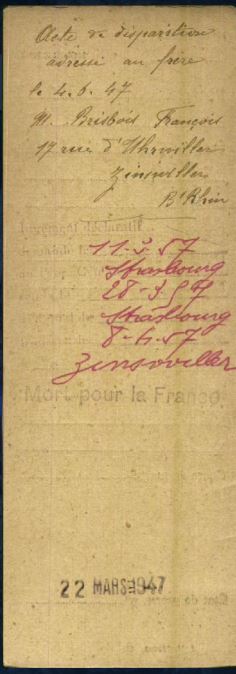 Acte de disparition
adressé au frère
le 4.6.47
M. Brisbois François
17 rue d'Uhrwiller
Zinswiller
Bs Rhin
11.3.57
Strasbourg
28-3-57
Strasbourg
8-4-57
Zinsoviller
Mort pour la France
22 MARS 1947